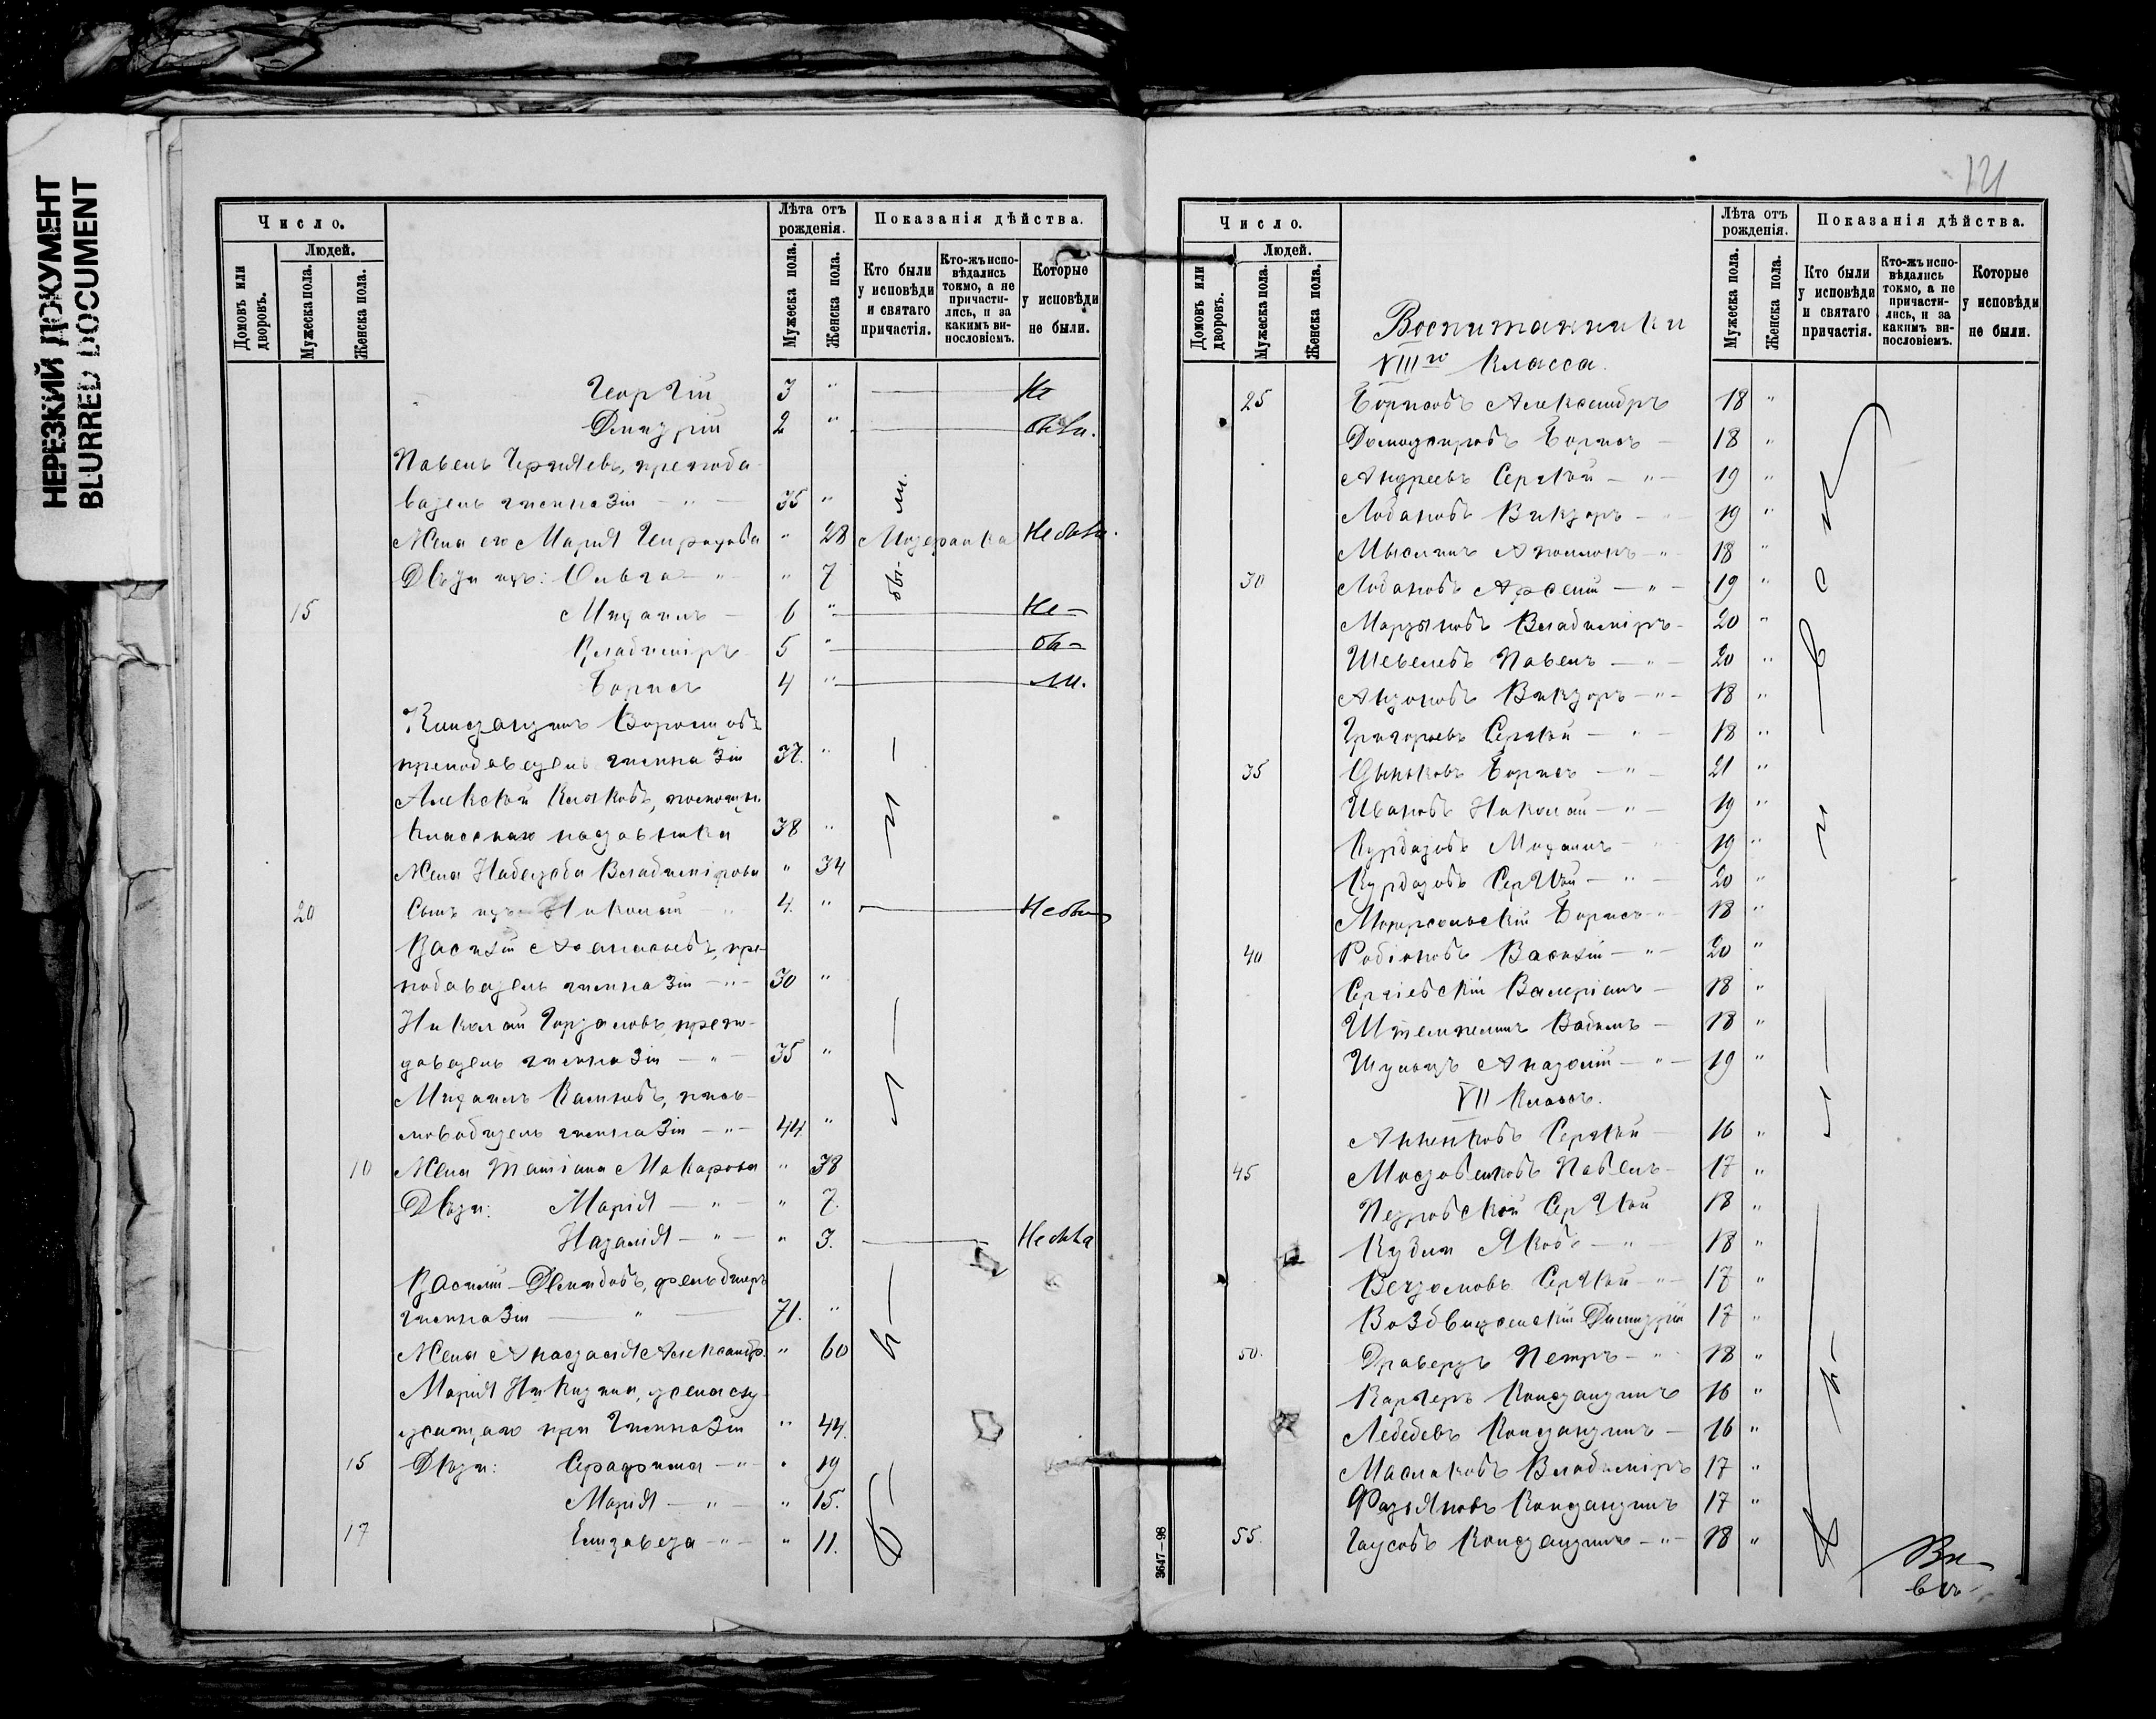 НЕРЕЗКИЙ ДОКУМЕНТ
BLURRED DOCUMENT
Число.
Лѣта отъ рожденія.
Показанія дѣйства.
Домовъ или дворовъ.
Людей.
Мужеска пола.
Женска пола.
Мужеска пола.
Женска пола.
Кто были у исповѣди и святаго причастія.
Кто-жъ исповѣдались токмо, а не причастились, и за какимъ винословіемъ.
Которые у исповѣди не были.
Георгій 3 " Не
Димитрій 2 " были.
Павелъ препода-
ватель гимназіи - " - 35 "
Жена его Марія " 28 Лютеранка Не была.
Дѣти ихъ: Ольга - " - " 7
15 Михаилъ - 6 " Не -
Владиміръ 5 " бы -
Борисъ 4 " ли.
Константинъ
преподаватель гимназіи 37. "
Алексѣй
класснаго наставника 38 "
Жена Надежда Владимірова " 34
20 Сынъ ихъ Николай - " 4. " Не былъ
Василій Аѳанасьевъ, пре-
подаватель гимназіи - " - 30 "
Николай препо-
даватель гимназіи - " - 35 "
Михаилъ Калиновъ, пись-
моводитель гимназіи - " - 44. "
10 Жена Татіана Макарова " 38
Дѣти: Марія - " - " 7.
Наталія - " - " 3. Не была
Василій Демидовъ, фельдшеръ
гимназіи - " - 71. "
Жена Анастасія Александр. " 60
Марія Никитина, жена слу-
жащаго при Гимназіи " 44.
15 Дѣти: Серафима - " - " 19
Марія - " - " 15.
17 Елизавета - " - " 11.
бы-ли.
121
Число.
Лѣта отъ рожденія.
Показанія дѣйства.
Домовъ или дворовъ.
Людей.
Мужеска пола.
Женска пола.
Мужеска пола.
Женска пола.
Кто были у исповѣди и святаго причастія.
Кто-жъ исповѣдались токмо, а не причастились, и за какимъ винословіемъ.
Которые у исповѣди не были.
Воспитанники
VIIIго класса.
25 Борисовъ Александръ 18 "
Борисъ - 18 "
Андреевъ Сергѣй - " - 19 "
Лобановъ Викторъ - " - 19 "
Мыслинъ Аполлонъ - " 18 "
30 Лобановъ Арсеній - " - 19 "
Мартыновъ Владиміръ - 20 "
Шевелевъ Павелъ - " - 20 "
Антоновъ Викторъ - " - 18 "
Григорьевъ Сергѣй - " - 18 "
35 Борисъ - " - 21 "
Ивановъ Николай - " - 19 "
Курбатовъ Михаилъ - " 19 "
Курбатовъ Сергѣй - " - 20 "
Борисъ - " 18 "
40 Родіоновъ Василій - " - 20 "
Сергіевскій Валеріанъ - 18 "
Штемпелинъ Вадимъ - 18 "
Анатолій - " - 19 "
VII классъ.
Анненковъ Сергѣй - 16 "
45 Мостовенковъ Павелъ - 17 "
Петровскій Сергѣй 18 "
Кудим Яковъ - " - 18 "
Сергѣй - " - 17 "
Воздвиженскій Димитрій 17 "
50. Драверт Петръ - " - 18 "
Каргеръ Константинъ 16 "
Лебедевъ Константинъ - 16 "
Маслаковъ Владиміръ 17 "
Фатьяновъ Константинъ 17 "
55. Гаусовъ Константинъ - " - 18 "
3647—98